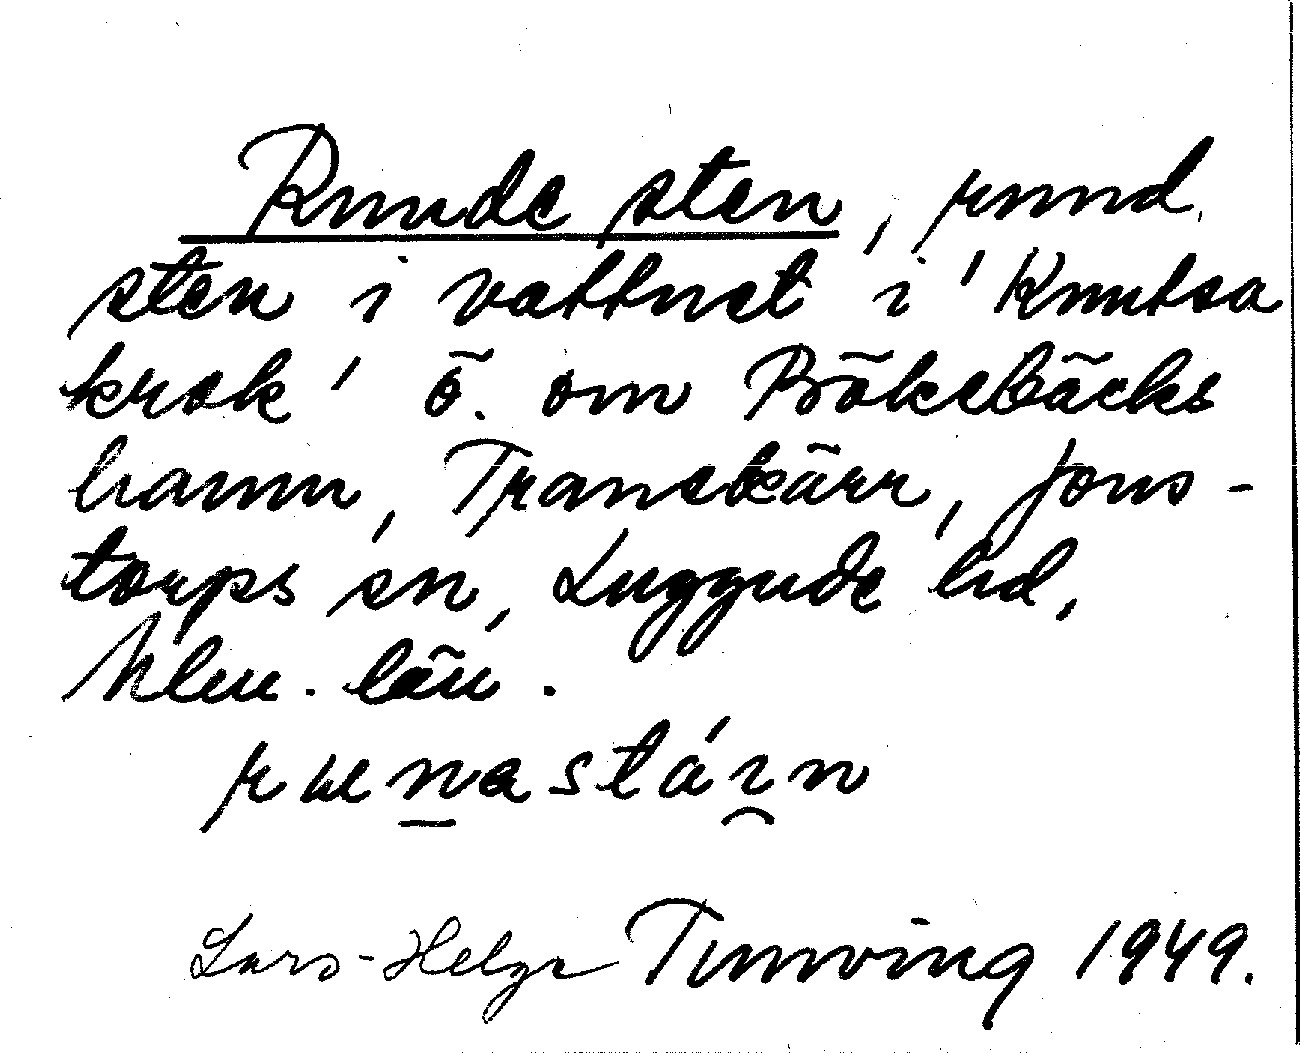 Runde sten, rund
sten i vattnet i 'Knutsa
krok' ö. om Bökebäcks
hamn, Tranekärr, Jons-
torps sn, Luggude hd,
Mlm. län.
runastáin
Lars-Helge Tunving 1949.